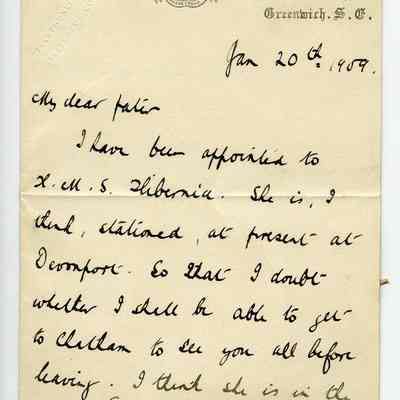 Greenwich. S. E.
Jan 20th 1909.
My dear pater
I have been appointed to
H. M. S. Hibernia. She is, I
think, stationed, at present at
Devonport. So that I doubt
whether I shall be able to get
to Chatham to see you all before
leaving. I think she is in the